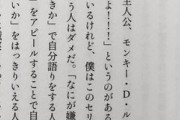 主人公、モンキー・D・ル
よ!!!」というのがある
いるけれど、僕はこのセリ
う人はダメだ。「なにが嫌
きか」で自分語りをする人
」をアピールすることで自
いか」をはっきりいえる人